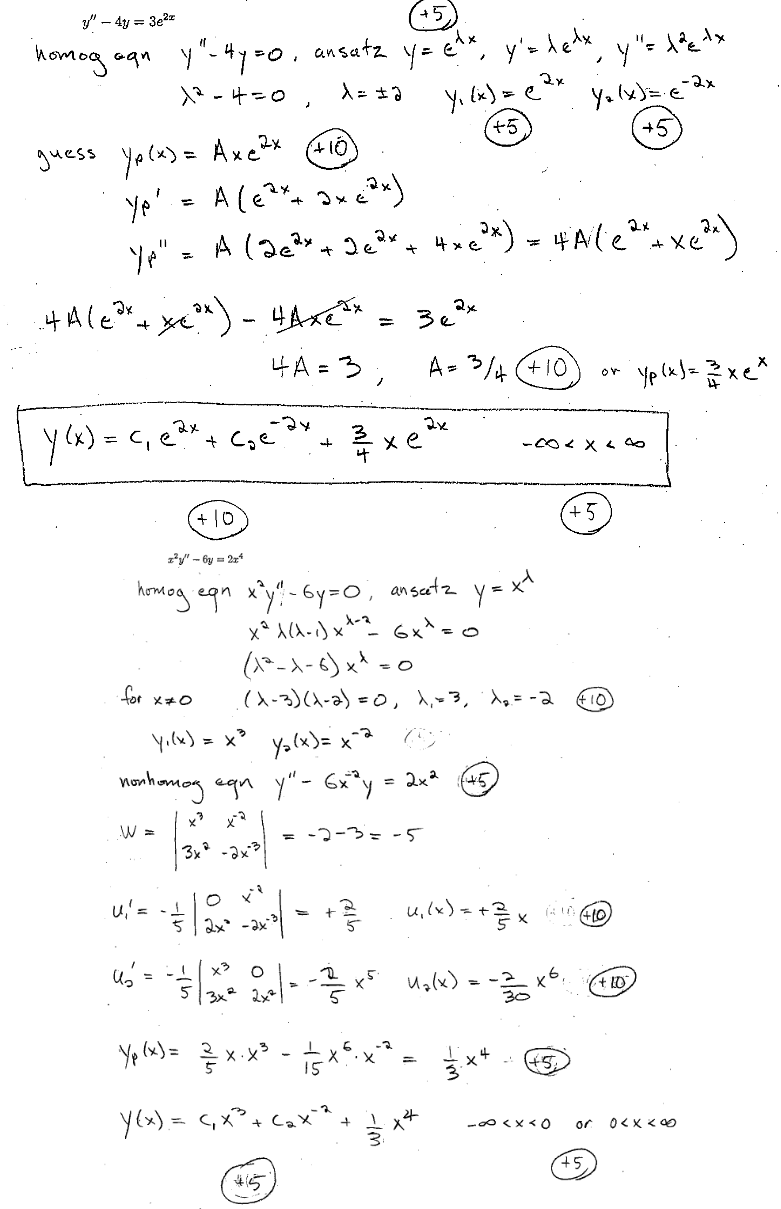 y″ − 4y = 3e²ˣ
(+5)
homog eqn y″ - 4y = 0, ansatz y = e^{λx}, y' = λe^{λx}, y″ = λ²e^{λx}
λ² - 4 = 0, λ = ±2 y₁(x) = e^{2x} y₂(x) = e^{-2x}
(+5) (+5)
guess yp(x) = Axe^{2x} (+10)
yp' = A(e^{2x} + 2xe^{2x})
yp″ = A(2e^{2x} + 2e^{2x} + 4xe^{2x}) = 4A(e^{2x} + xe^{2x})
4A(e^{2x} + xe^{2x}) - 4Axe^{2x} = 3e^{2x}
4A = 3, A = 3/4 (+10) or yp(x) = 3/4 xe^{x}
y(x) = c₁e^{2x} + c₂e^{-2x} + 3/4 xe^{2x} -∞ < x < ∞
(+10) (+5)
x²y″ − 6y = 2x⁴
homog eqn x²y″ - 6y = 0, ansatz y = x^λ
x² λ(λ-1) x^{λ-2} - 6x^λ = 0
(λ² - λ - 6) x^λ = 0
for x≠0 (λ-3)(λ-2) = 0, λ₁ = 3, λ₂ = -2 (+10)
y₁(x) = x³ y₂(x) = x^{-2}
nonhomog eqn y″ - 6x^{-2}y = 2x² (+5)
W = |x³ x^{-2}|
|3x² -2x^{-3}| = -2-3 = -5
u₁' = -1/5 |0 x^{-2}|
|2x² -2x^{-3}| = +2/5 u₁(x) = +2/5 x (+10)
u₂' = -1/5 |x³ 0|
|3x² 2x²| = -2/5 x⁵ u₂(x) = -2/30 x⁶ (+10)
yp(x) = 2/5 x·x³ - 1/15 x⁶·x^{-2} = 1/3 x⁴ (+5)
y(x) = c₁x³ + c₂x^{-2} + 1/3 x⁴ -∞ < x < 0 or 0 < x < ∞
(+5) (+5)